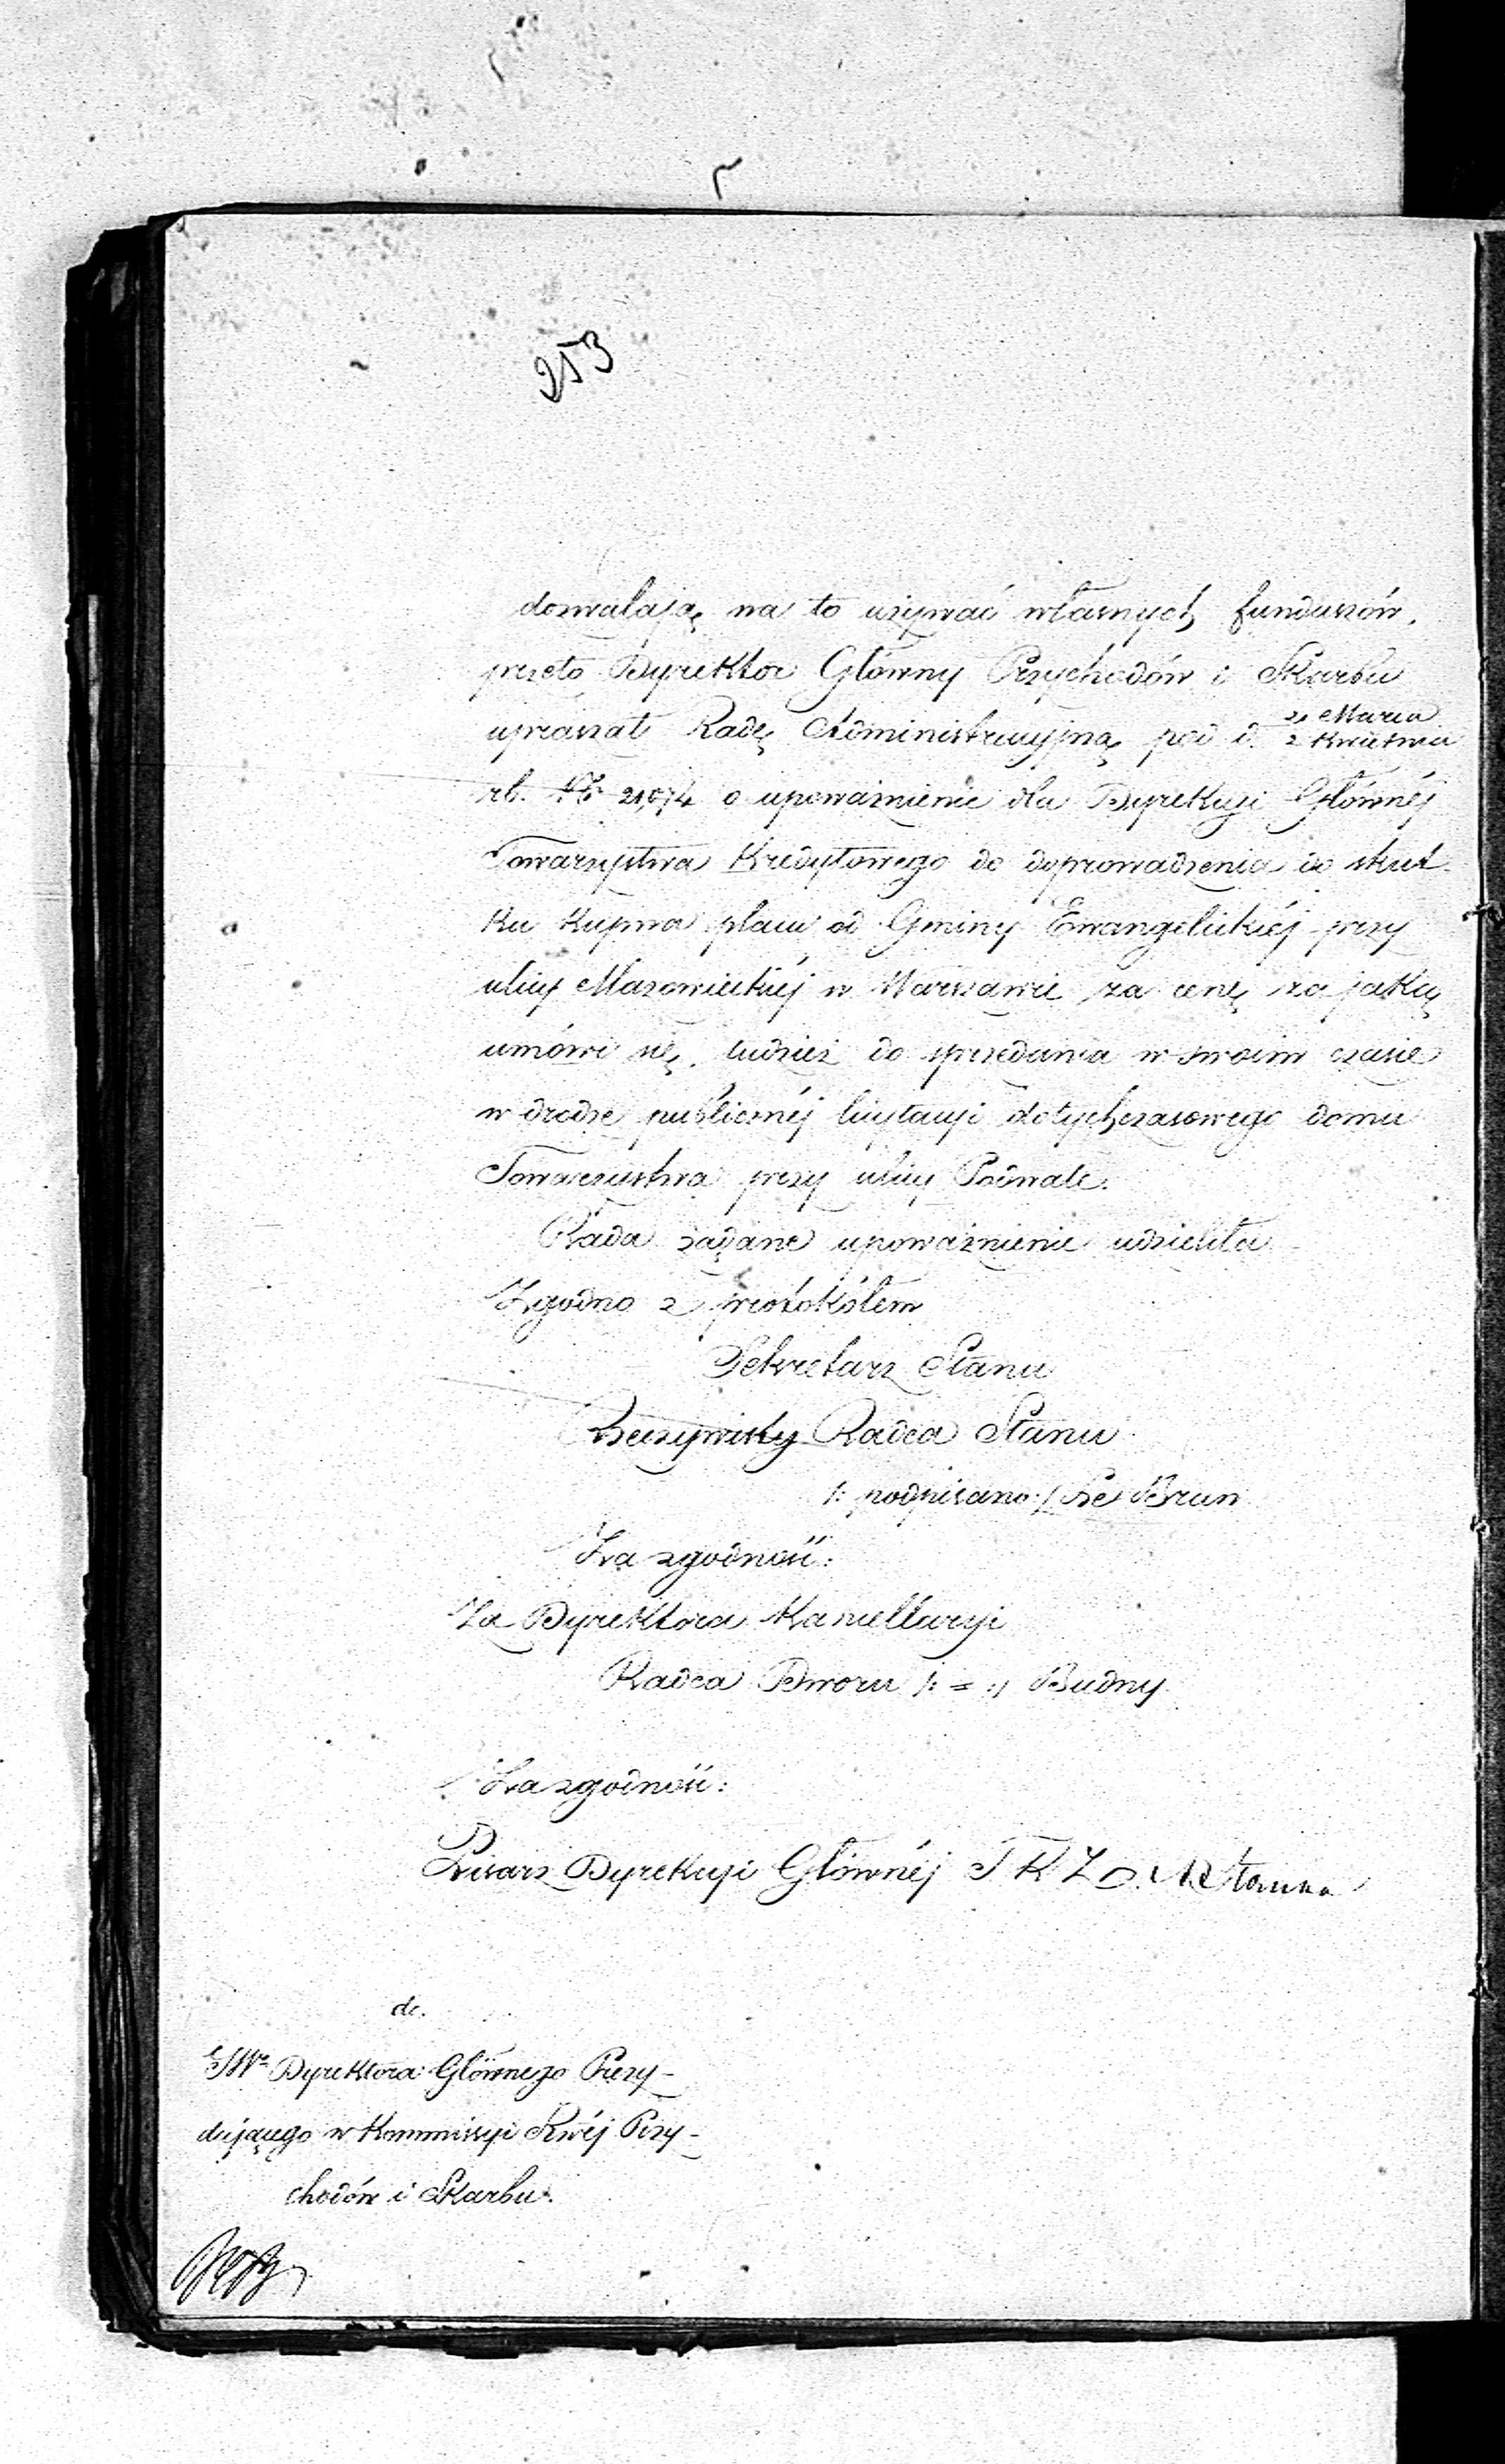 253
dozwalają na to używać własnych funduszów,
przeto Dyrektor Główny Przychodów i Skarbu
upraszał Radę Administracyjną pod d. 21 Marca
2 Kwietnia
rb. № 21,074 o upoważnienie dla Dyrekcyi Głównéj
Towarzystwa Kredytowego do doprowadzenia do skut-
ku kupna placu od Gminy Ewangelickiéj przy
ulicy Mazowieckiéj w Warszawie za cenę za jaką
umówi się, tudzież do sprzedania w swoim czasie
w drodze publicznéj licytacyi dotychczasowego domu
Towarzystwa przy ulicy Podwale.
Rada żądane upoważnienie udzieliła
Zgodno z protokółem
Sekretarz Stanu
Rzeczywisty Radca Stanu
/: podpisano :/ Le Brun
Za zgodność:
Za Dyrektora Kancellaryi
Radca Dworu /: = :/ Budny
Za zgodność:
Pisarz Dyrekcyi Głównéj T K Z
do.
JW Dyrektora Głównego Prezy-
dującego w Kommissyi Rwéj Przy-
chodów i Skarbu.